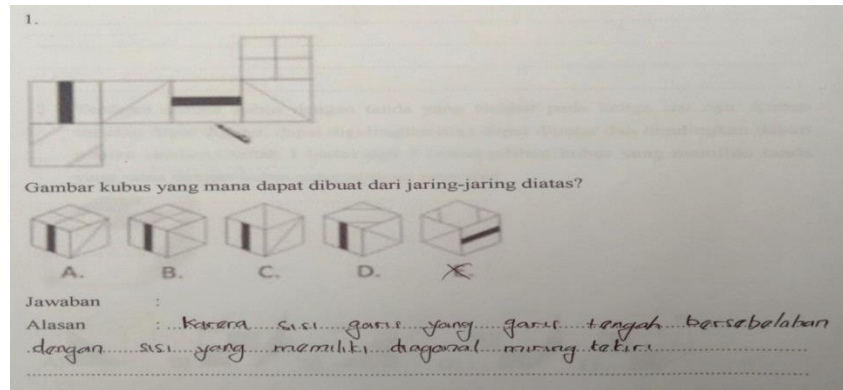 1.
Gambar kubus yang mana dapat dibuat dari jaring-jaring diatas?
A. B. C. D. E.
Jawaban :
Alasan : Karena sisi garis yang garis tengah bersebelahan
dengan sisi yang memiliki diagonal miring kekiri